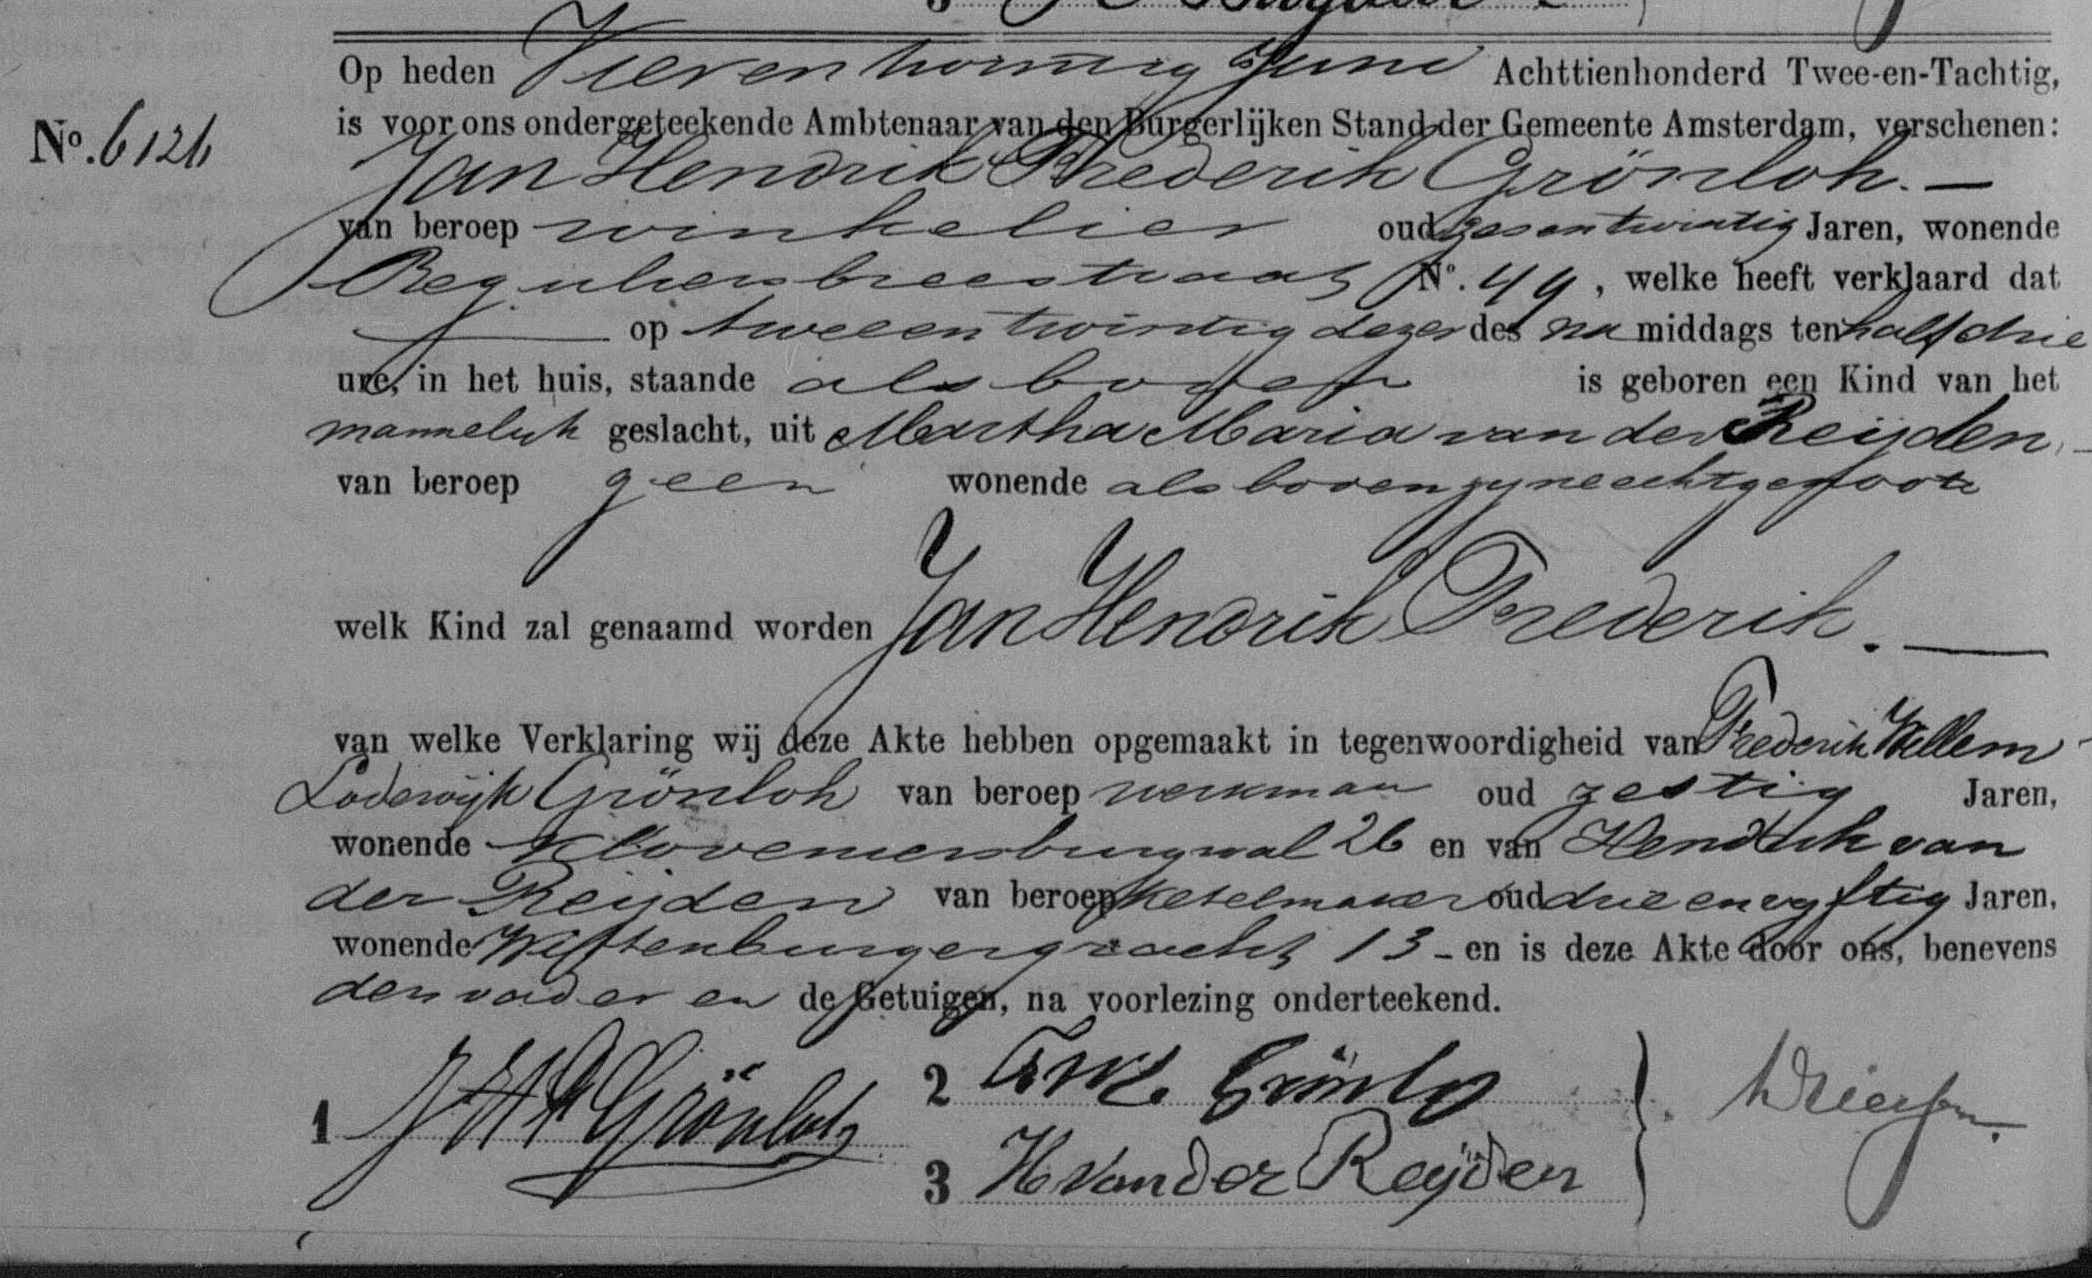 Op heden Vierentwintig Juni Achttienhonderd Twee-en-Tachtig,
No. 6126 is voor ons ondergeteekende Ambtenaar van den Burgerlijken Stand der Gemeente Amsterdam, verschenen:
Jan Hendrik Frederik Grönloh. —
van beroep winkelier oud zesentwintig Jaren, wonende
Reguliersbreestraat No. 49, welke heeft verklaard dat
— op tweeentwintig dezer des na middags ten half drie
ure, in het huis, staande als boven is geboren een Kind van het
mannelijk geslacht, uit Martha Maria van der Reijden, -
van beroep geen wonende als boven zyne echtgenoote
welk Kind zal genaamd worden Jan Hendrik Frederik. —
van welke Verklaring wij deze Akte hebben opgemaakt in tegenwoordigheid van Frederik Willem
Lodewijk Grönloh van beroep werkman oud zestig Jaren,
wonende Kloveniersburgwal 26 en van Hendrik van
der Reijden van beroep ketelmaker oud drie en vyftig Jaren,
wonende Wittenburgergracht 13 - en is deze Akte door ons, benevens
den vader en de Getuigen, na voorlezing onderteekend.
1 JHF Grönloh 2 FWL Grönloh
3 H van der Reijden